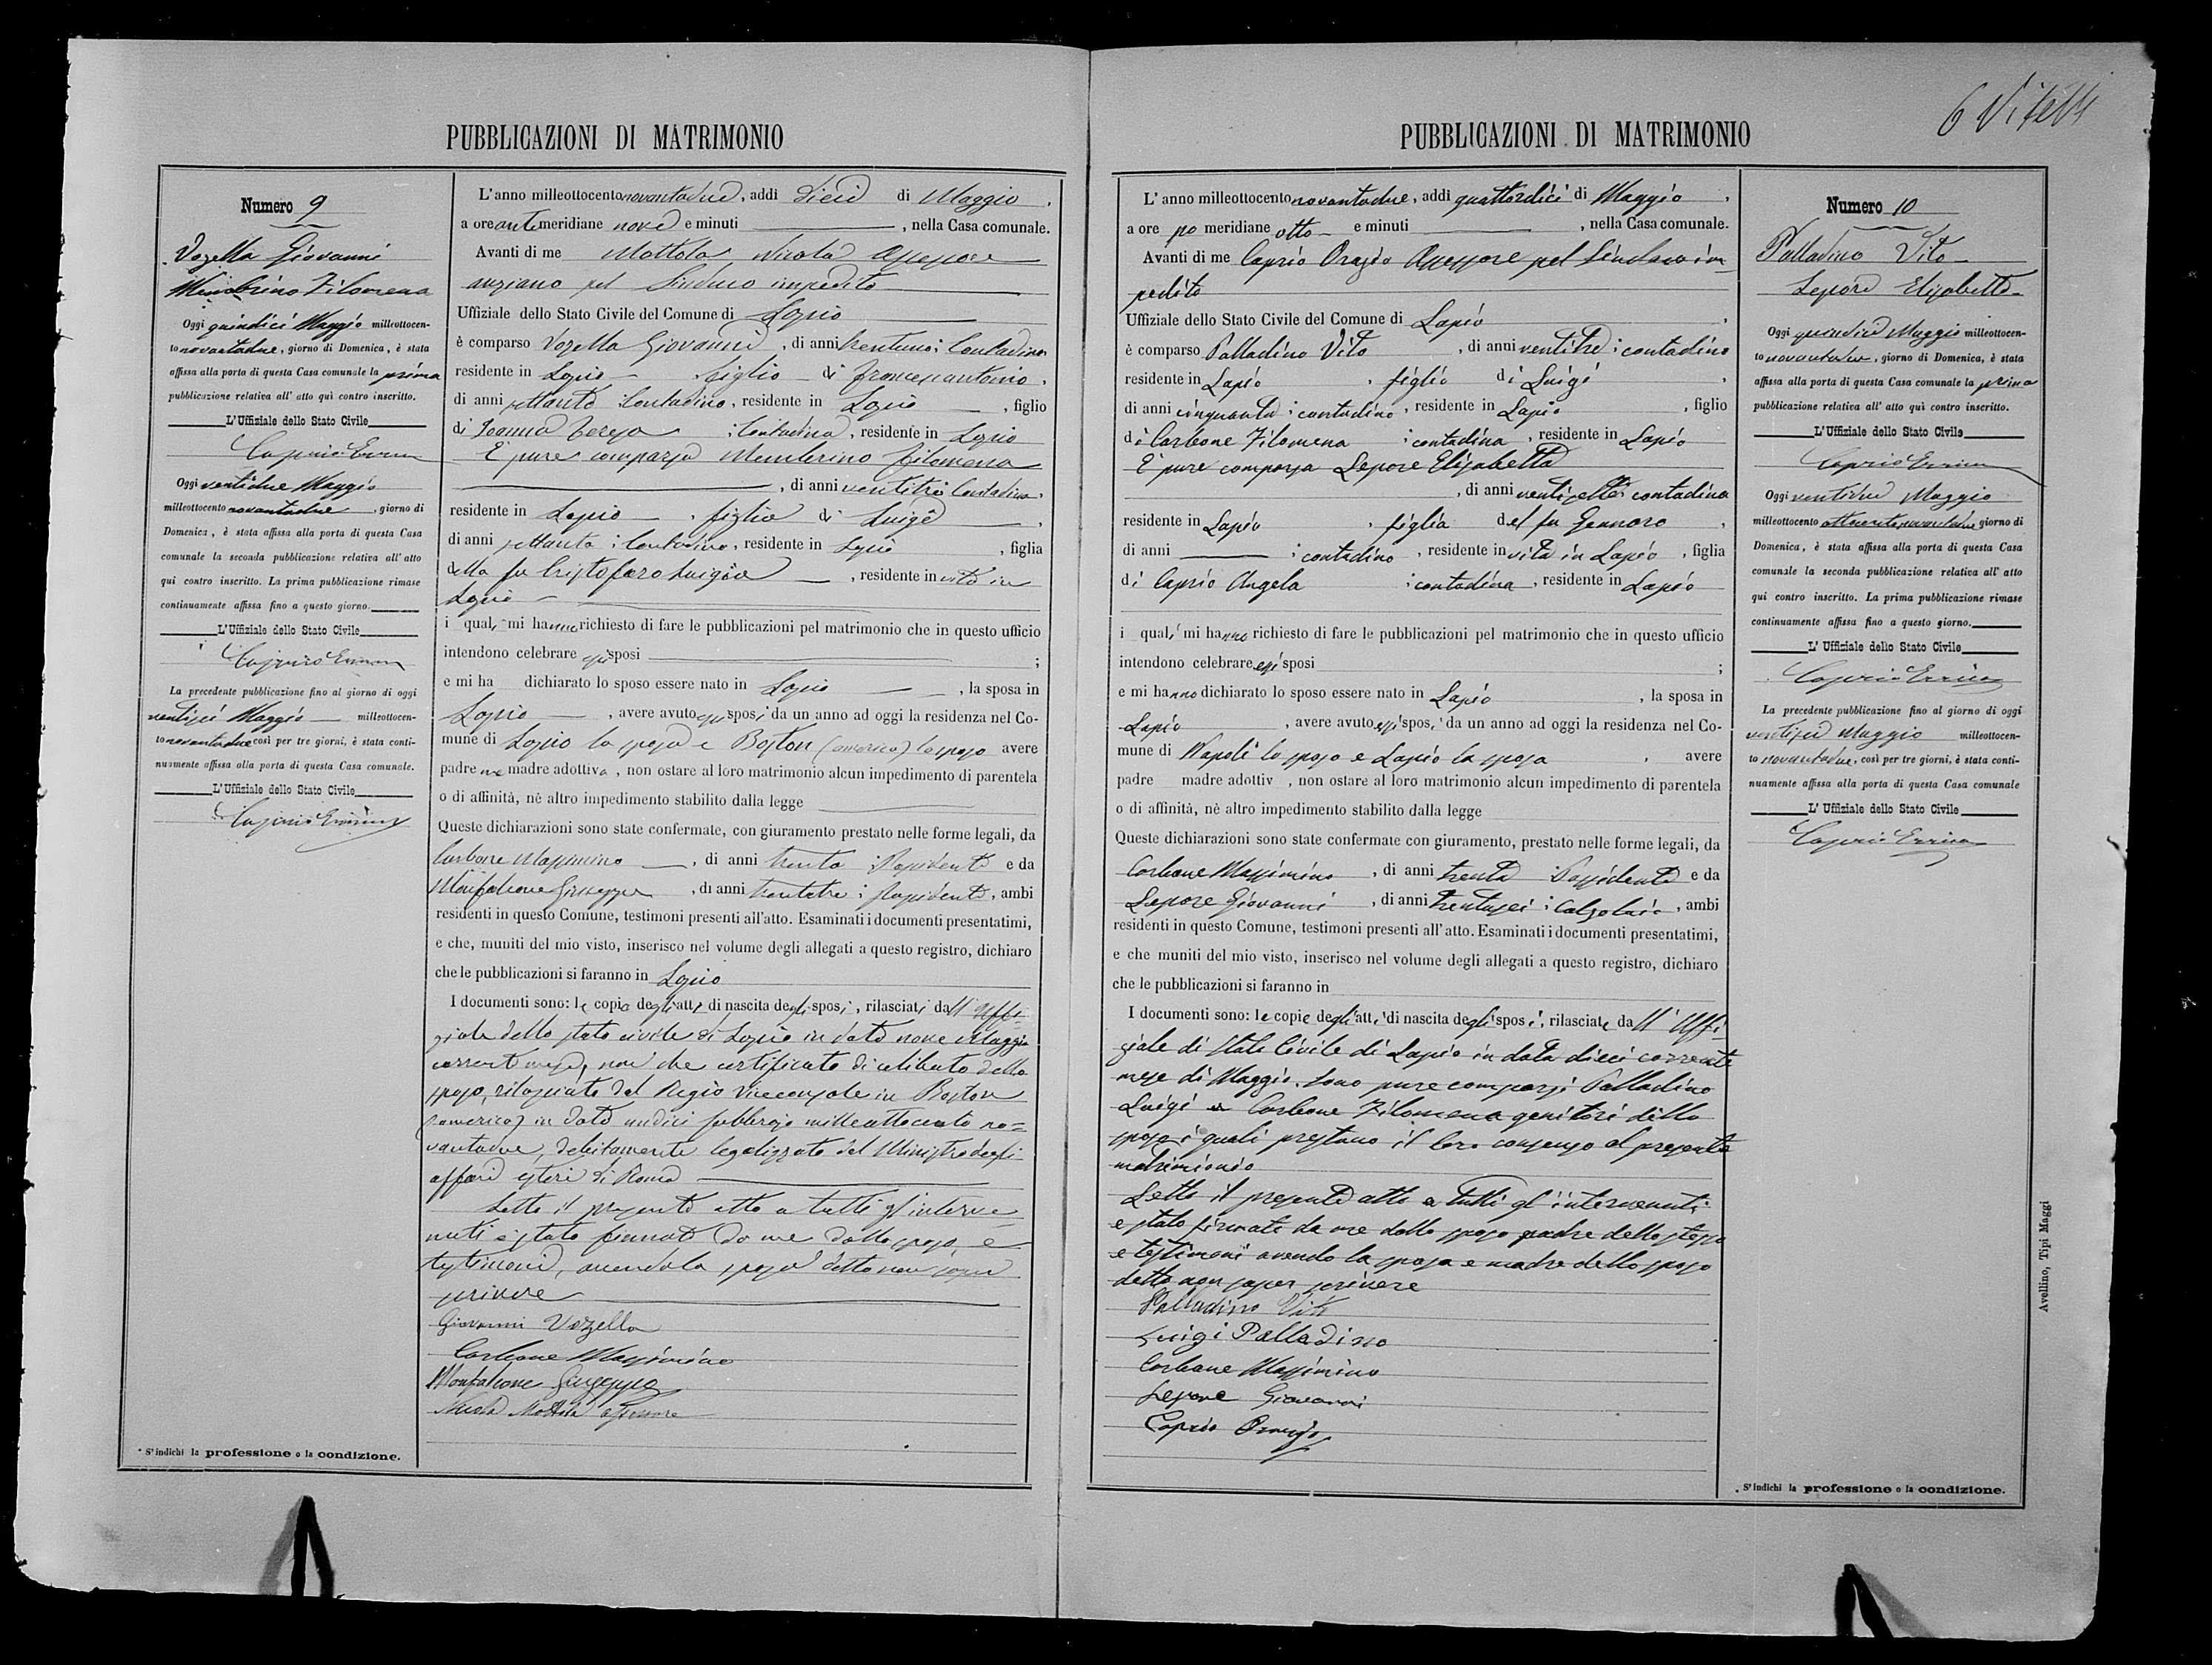 PUBBLICAZIONI DI MATRIMONIO
Numero 9
Vozella Giovanni
Filomena
Oggi quindici Maggio milleottocen-
to novantadue, giorno di Domenica, è stata
affissa alla porta di questa Casa comunale la prima
pubblicazione relativa all' atto quì contro inscritto.
L'Uffiziale dello Stato Civile
Caprio Errico
Oggi ventidue Maggio
milleottocento novantadue, giorno di
Domenica, è stata affissa alla porta di questa Casa
comunale la seconda pubblicazione relativa all' atto
qui contro inscritto. La prima pubblicazione rimase
continuamente affissa fino a questo giorno.
L'Uffiziale dello Stato Civile
Caprio Errico
La precedente pubblicazione fino al giorno di oggi
ventisei Maggio milleottocen-
to novantadue così per tre giorni, è stata conti-
nuamente affissa alla porta di questa Casa comunale.
L'Uffiziale dello Stato Civile
Caprio Errico
* S'indichi la professione o la condizione.
L'anno milleottocento novantadue, addi dieci di Maggio,
a ore antemeridiane nove e minuti , nella Casa comunale.
Avanti di me Mottola Nicola Assessore
anziano pel Sindaco impedito
Uffiziale dello Stato Civile del Comune di Lapio
è comparso Vozella Giovanni, di anni trentuno; Contadino
residente in Lapio figlio di Francescantonio,
di anni settanta; Contadino, residente in Lapio, figlio
di Ioanna Teresa; Contadina, residente in Lapio
E pure comparsa Filomena
, di anni ventitre; Contadina,
residente in Lapio, figlia di Luigi,
di anni settanta; Contadino, residente in Lapio, figlia
della fu Cristofaro Luigia, residente in vita in
Lapio
i quali mi hanno richiesto di fare le pubblicazioni pel matrimonio che in questo ufficio
intendono celebrare essi sposi ;
e mi ha dichiarato lo sposo essere nato in Lapio, la sposa in
Lapio, avere avuto essi sposi da un anno ad oggi la residenza nel Co-
mune di Lapio la sposa e Boston (america) lo sposo avere
padre ne madre adottiva, non ostare al loro matrimonio alcun impedimento di parentela
o di affinità, nè altro impedimento stabilito dalla legge
Queste dichiarazioni sono state confermate, con giuramento prestato nelle forme legali, da
Carbone Massimino, di anni trenta; Possidente e da
Monfalcone Giuseppe, di anni trentatre; Possidente, ambi
residenti in questo Comune, testimoni presenti all'atto. Esaminati i documenti presentatimi,
e che, muniti del mio visto, inserisco nel volume degli allegati a questo registro, dichiaro
che le pubblicazioni si faranno in Lapio
I documenti sono: le copie degli atti di nascita degli sposi, rilasciati dall'Uffi-
ziale dello stato civile di Lapio in data nove Maggio
corrente mese, non che certificato di celibato dello
sposo, rilasciato dal Regio Viceconsole in Boston
(america) in data undici febbraio milleottocento no=
vantadue, debitamente legalizzato dal Ministro degli
affari esteri di Roma
Letto il presente atto a tutti gl'interve=
nuti è stato firmato da me dallo sposo, e
testimoni, avendo la sposa detto non saper
scrivere
Giovanni Vozella
Carbone Massimino
Monfalcone Giuseppe
Nicola Mottola assessore
PUBBLICAZIONI DI MATRIMONIO
6
L'anno milleottocento novantadue, addi quattordici di Maggio,
a ore po meridiane otto e minuti , nella Casa comunale.
Avanti di me Caprio Orazio Assessore pel Sindaco im-
pedito
Uffiziale dello Stato Civile del Comune di Lapio,
è comparso Palladino Vito, di anni ventitre; contadino
residente in Lapio, figlio di Luigi,
di anni cinquanta; contadino, residente in Lapio, figlio
di Carbone Filomena; contadina, residente in Lapio
E pure comparsa Lepore Elisabetta
, di anni ventisette; contadina
residente in Lapio, figlia del fu Gennaro,
di anni ; contadino, residente in vita in Lapio, figlia
di Caprio Angela; contadina, residente in Lapio
i quali mi hanno richiesto di fare le pubblicazioni pel matrimonio che in questo ufficio
intendono celebrare essi sposi ;
e mi hanno dichiarato lo sposo essere nato in Lapio, la sposa in
Lapio, avere avuto essi sposi da un anno ad oggi la residenza nel Co-
mune di Napoli lo sposo e Lapio la sposa, avere
padre madre adottiv , non ostare al loro matrimonio alcun impedimento di parentela
o di affinità, nè altro impedimento stabilito dalla legge
Queste dichiarazioni sono state confermate con giuramento, prestato nelle forme legali, da
Carbone Massimino, di anni trenta; Possidente e da
Lepore Giovanni, di anni trentasei; Calzolaio, ambi
residenti in questo Comune, testimoni presenti all'atto. Esaminati i documenti presentatimi,
e che muniti del mio visto, inserisco nel volume degli allegati a questo registro, dichiaro
che le pubblicazioni si faranno in
I documenti sono: le copie degli atti di nascita degli sposi, rilasciate dall' Uffi
ziale di Stato Civile di Lapio in data dieci corrente
mese di Maggio. Sono pure comparsi Palladino
Luigi e Carbone Filomena genitori dello
sposo i quali prestano il loro consenso al presente
matrimonio
Letto il presente atto a tutti gl'intervenuti
e stato firmato da me dallo sposo padre dello stesso
e testimoni avendo la sposa e madre dello sposo
detto non saper scrivere
Palladino Vito
Luigi Palladino
Carbone Massimino
Lepore Giovanni
Caprio Orazio
Numero 10
Palladino Vito
Lepore Elisabetta
Oggi quindici Maggio milleottocen-
to novantadue, giorno di Domenica, è stata
affissa alla porta di questa Casa comunale la prima
pubblicazione relativa all' atto quì contro inscritto.
L'Uffiziale dello Stato Civile
Caprio Errico
Oggi ventidue Maggio
milleottocento ottocentonovantadue giorno di
Domenica, è stata affissa alla porta di questa Casa
comunale la seconda pubblicazione relativa all' atto
qui contro inscritto. La prima pubblicazione rimase
continuamente affissa fino a questo giorno.
L' Uffiziale dello Stato Civile
Caprio Errico
La precedente pubblicazione fino al giorno di oggi
ventisei Maggio milleottocen-
to novantadue, così per tre giorni, è stata conti-
nuamente affissa alla porta di questa Casa comunale
L' Uffiziale dello Stato Civile
Caprio Errico
* S'indichi la professione o la condizione.
Avellino, Tipi Maggi